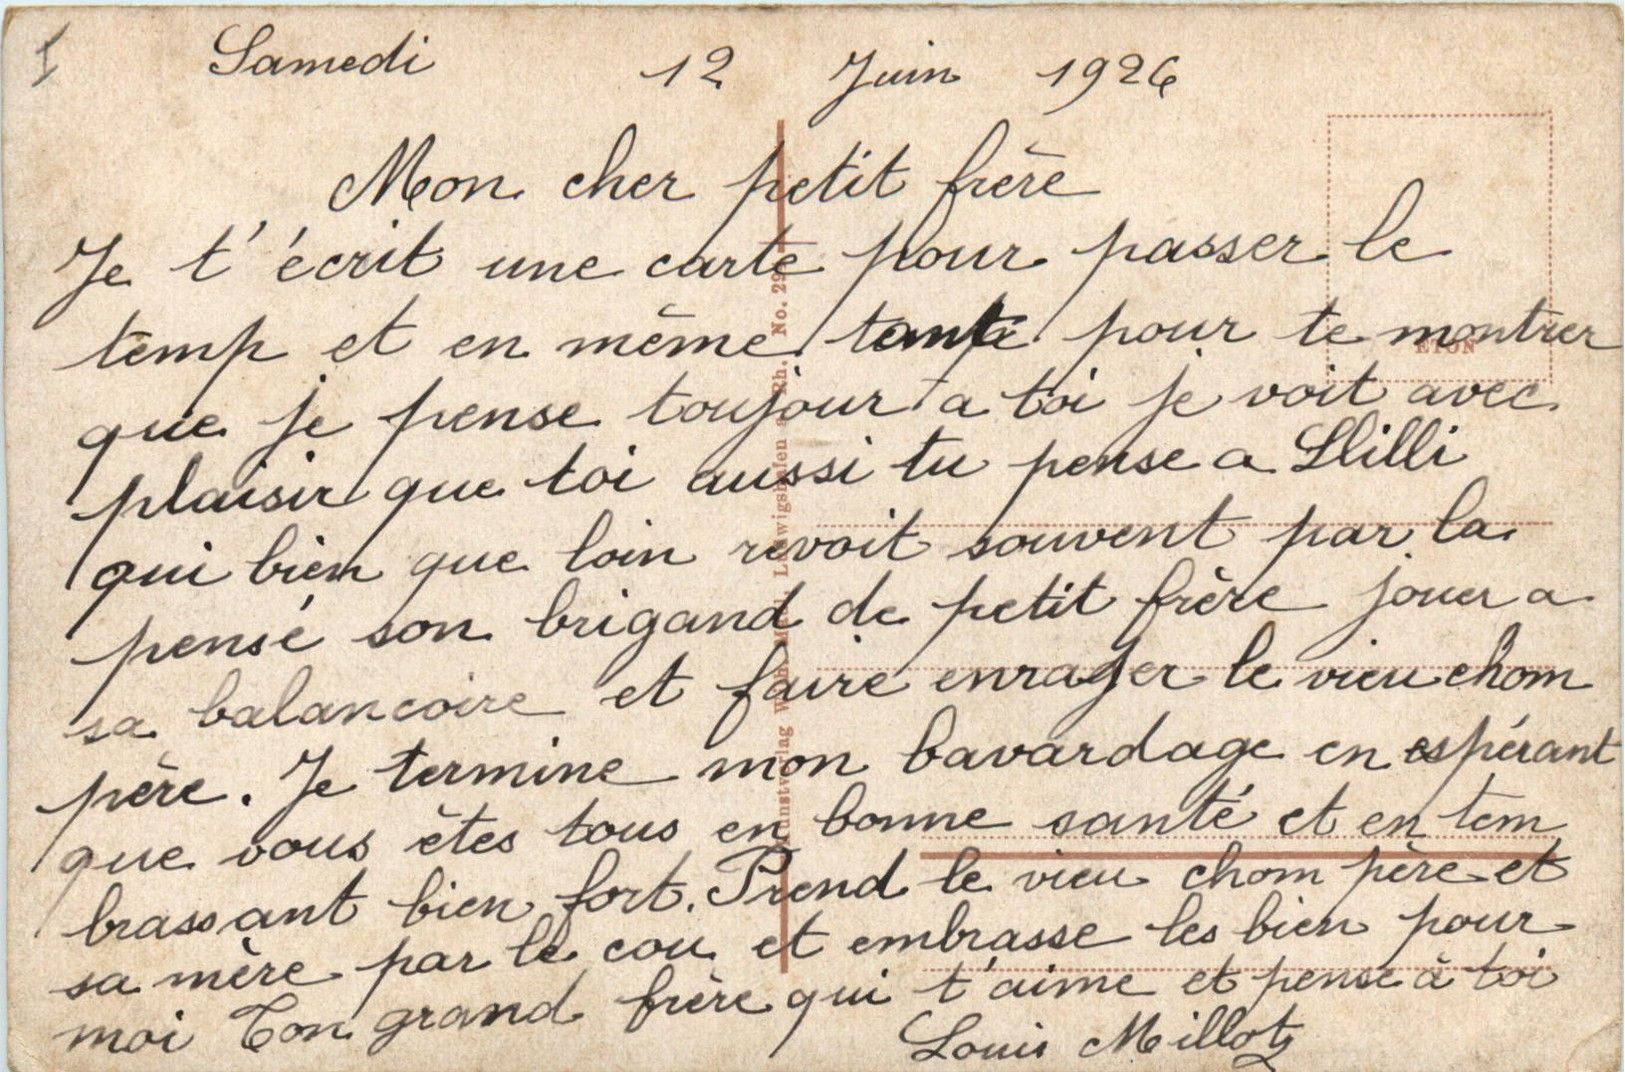 I
Samedi 12 Juin 1926
Mon cher petit frère
Je t'écrit une carte pour passer le
temp et en même pour te montrer
que je pense toujour a toi je voit avec
plaisir que toi aussi tu pense a Llilli
qui bien que loin revoit souvent par la
pensé son brigand de petit frère jouer a
sa balancoire et faire enrager le vieu chom
père. Je termine mon bavardage en espérant
que vous êtes tous en bonne santé et en tem
brassant bien fort. Prend le vieu chom père et
sa mère par le cou et embrasse les bien pour
moi Ton grand frère qui t'aime et pense à toi
Louis Millotz
Kunstverlag Ludwigshafen a. Rh. No. 29
ETON